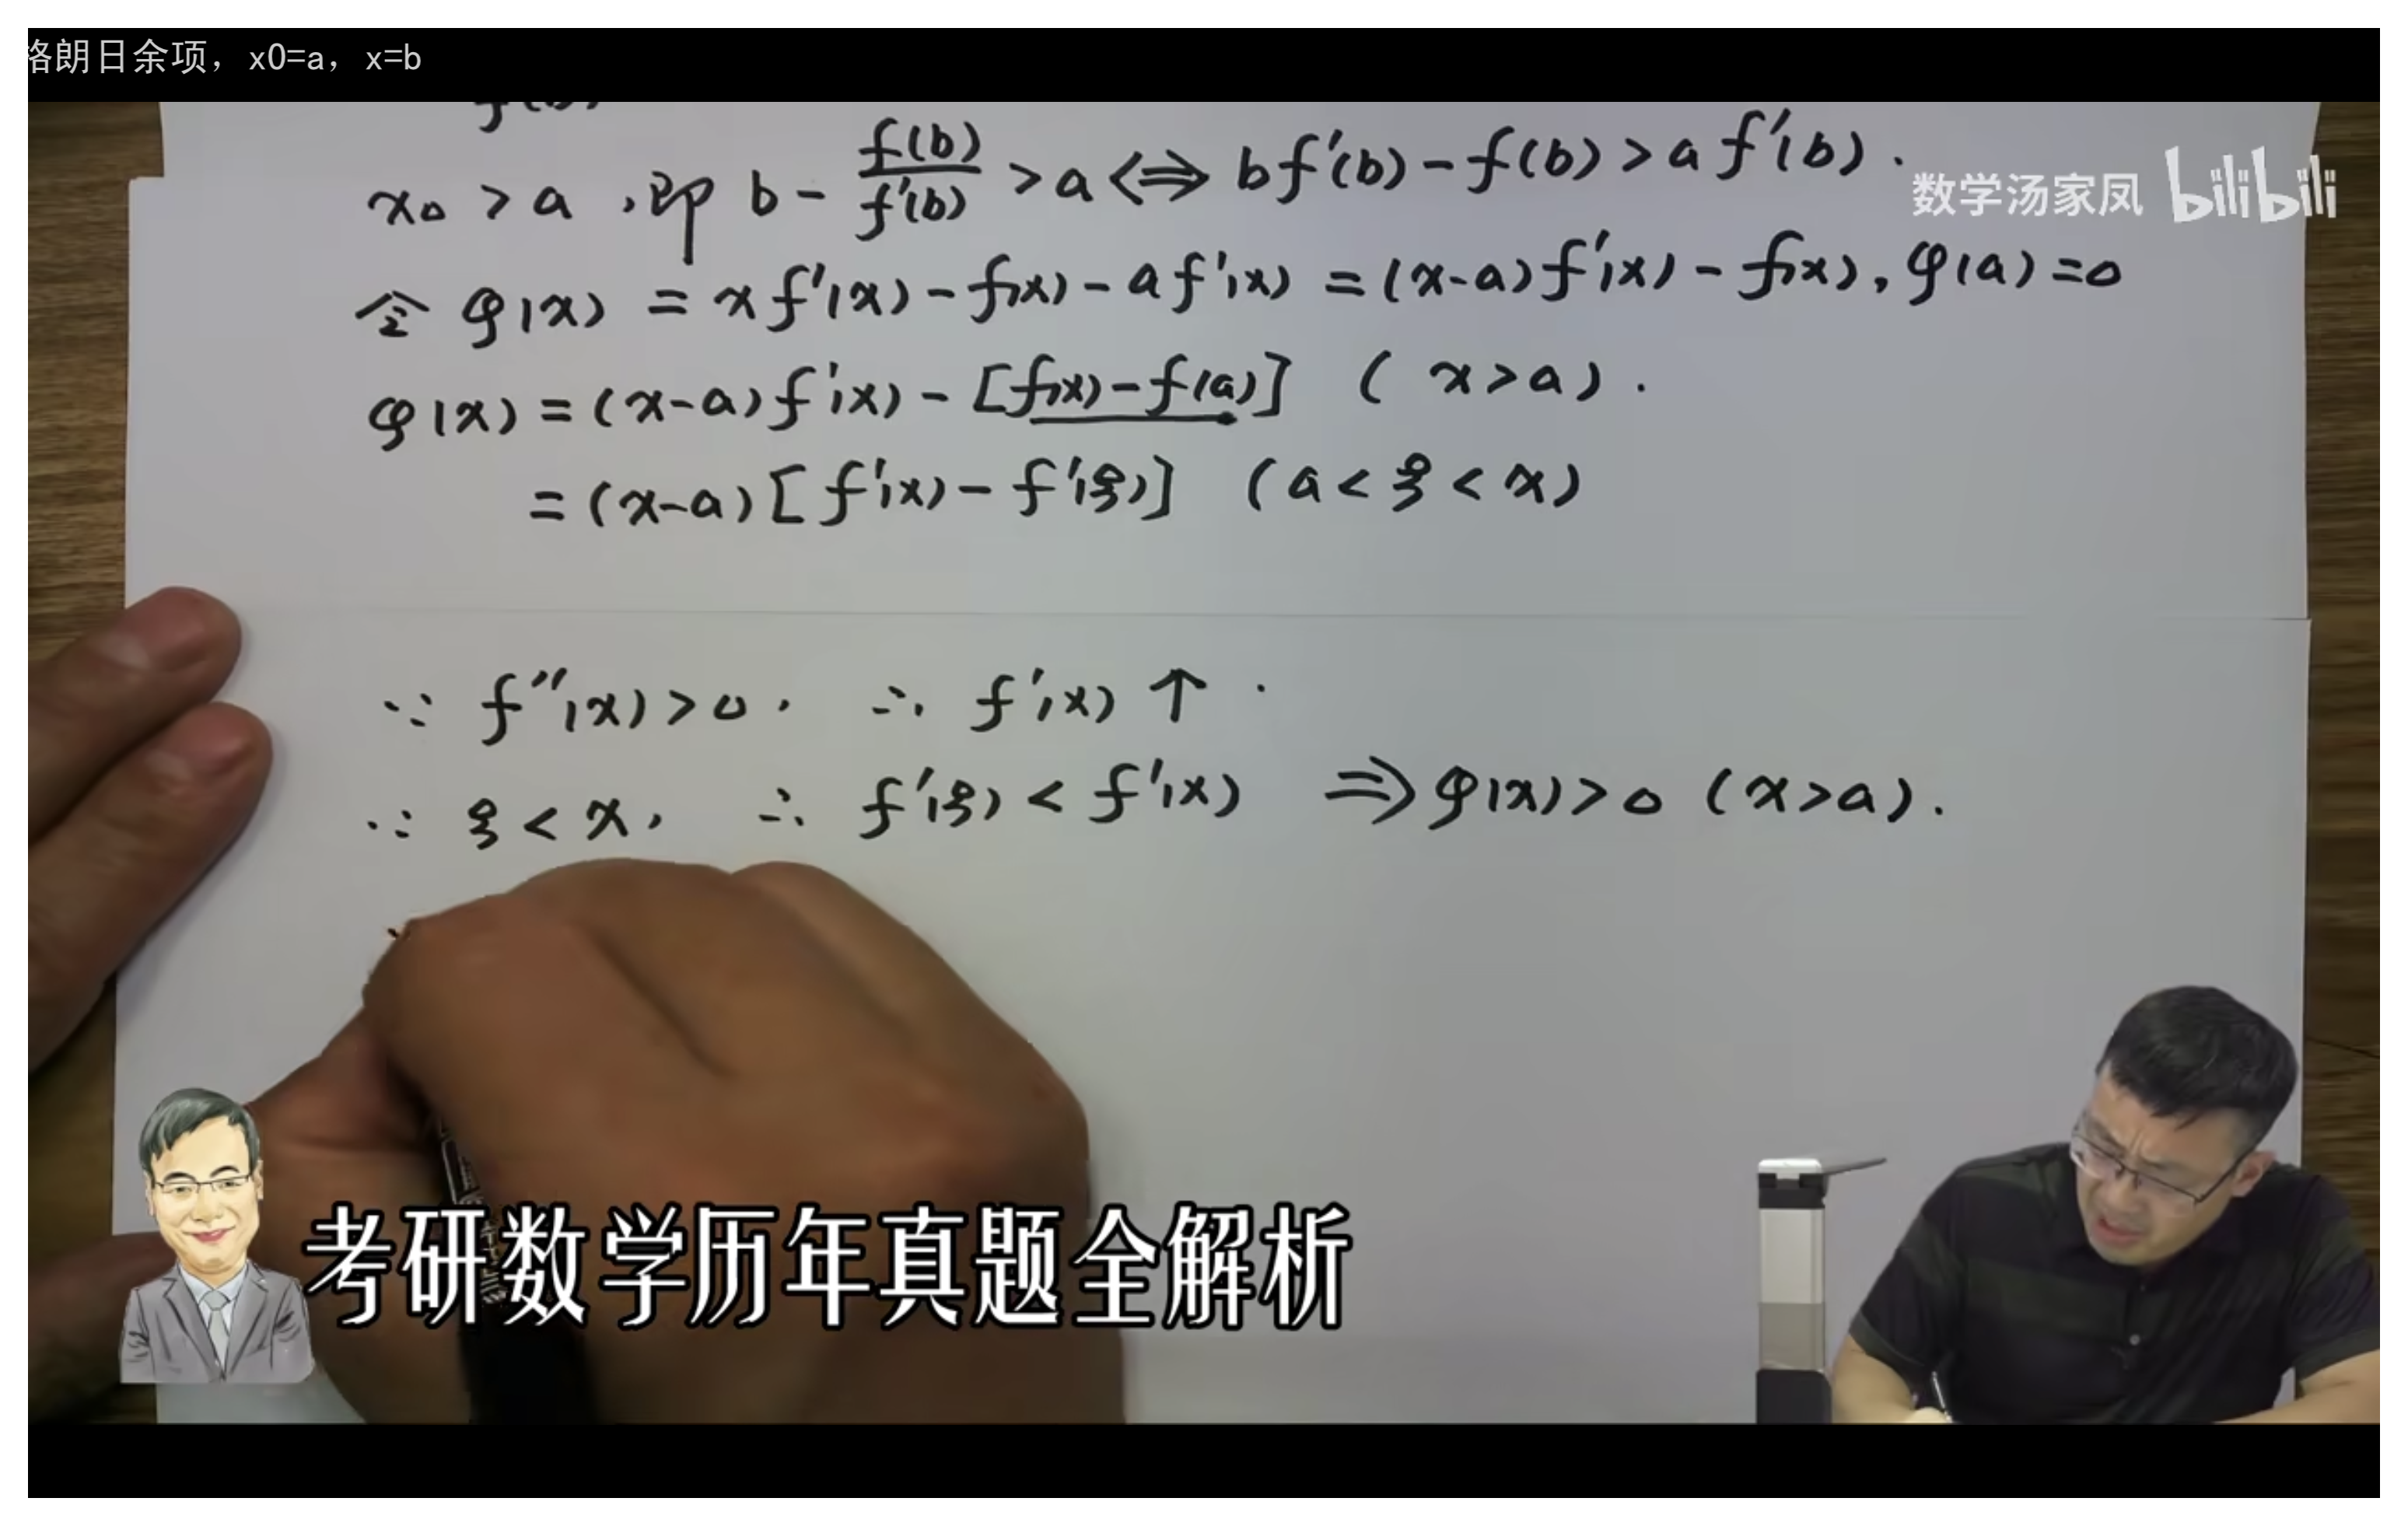 格朗日余项，x0=a，x=b
x₀ > a ，即 b - f(b)/f'(b) > a ⇔ bf'(b) - f(b) > a f'(b) .
数学汤家凤 bilibili
令 φ(x) = x f'(x) - f(x) - a f'(x) = (x-a) f'(x) - f(x), φ(a) = 0
φ(x) = (x-a) f'(x) - [f(x) - f(a)] ( x > a ) .
= (x-a) [ f'(x) - f'(ξ)] (a < ξ < x)
∵ f''(x) > 0 , ∴ f'(x) ↑ .
∵ ξ < x , ∴ f'(ξ) < f'(x) ⇒ φ(x) > 0 (x > a) .
考研数学历年真题全解析